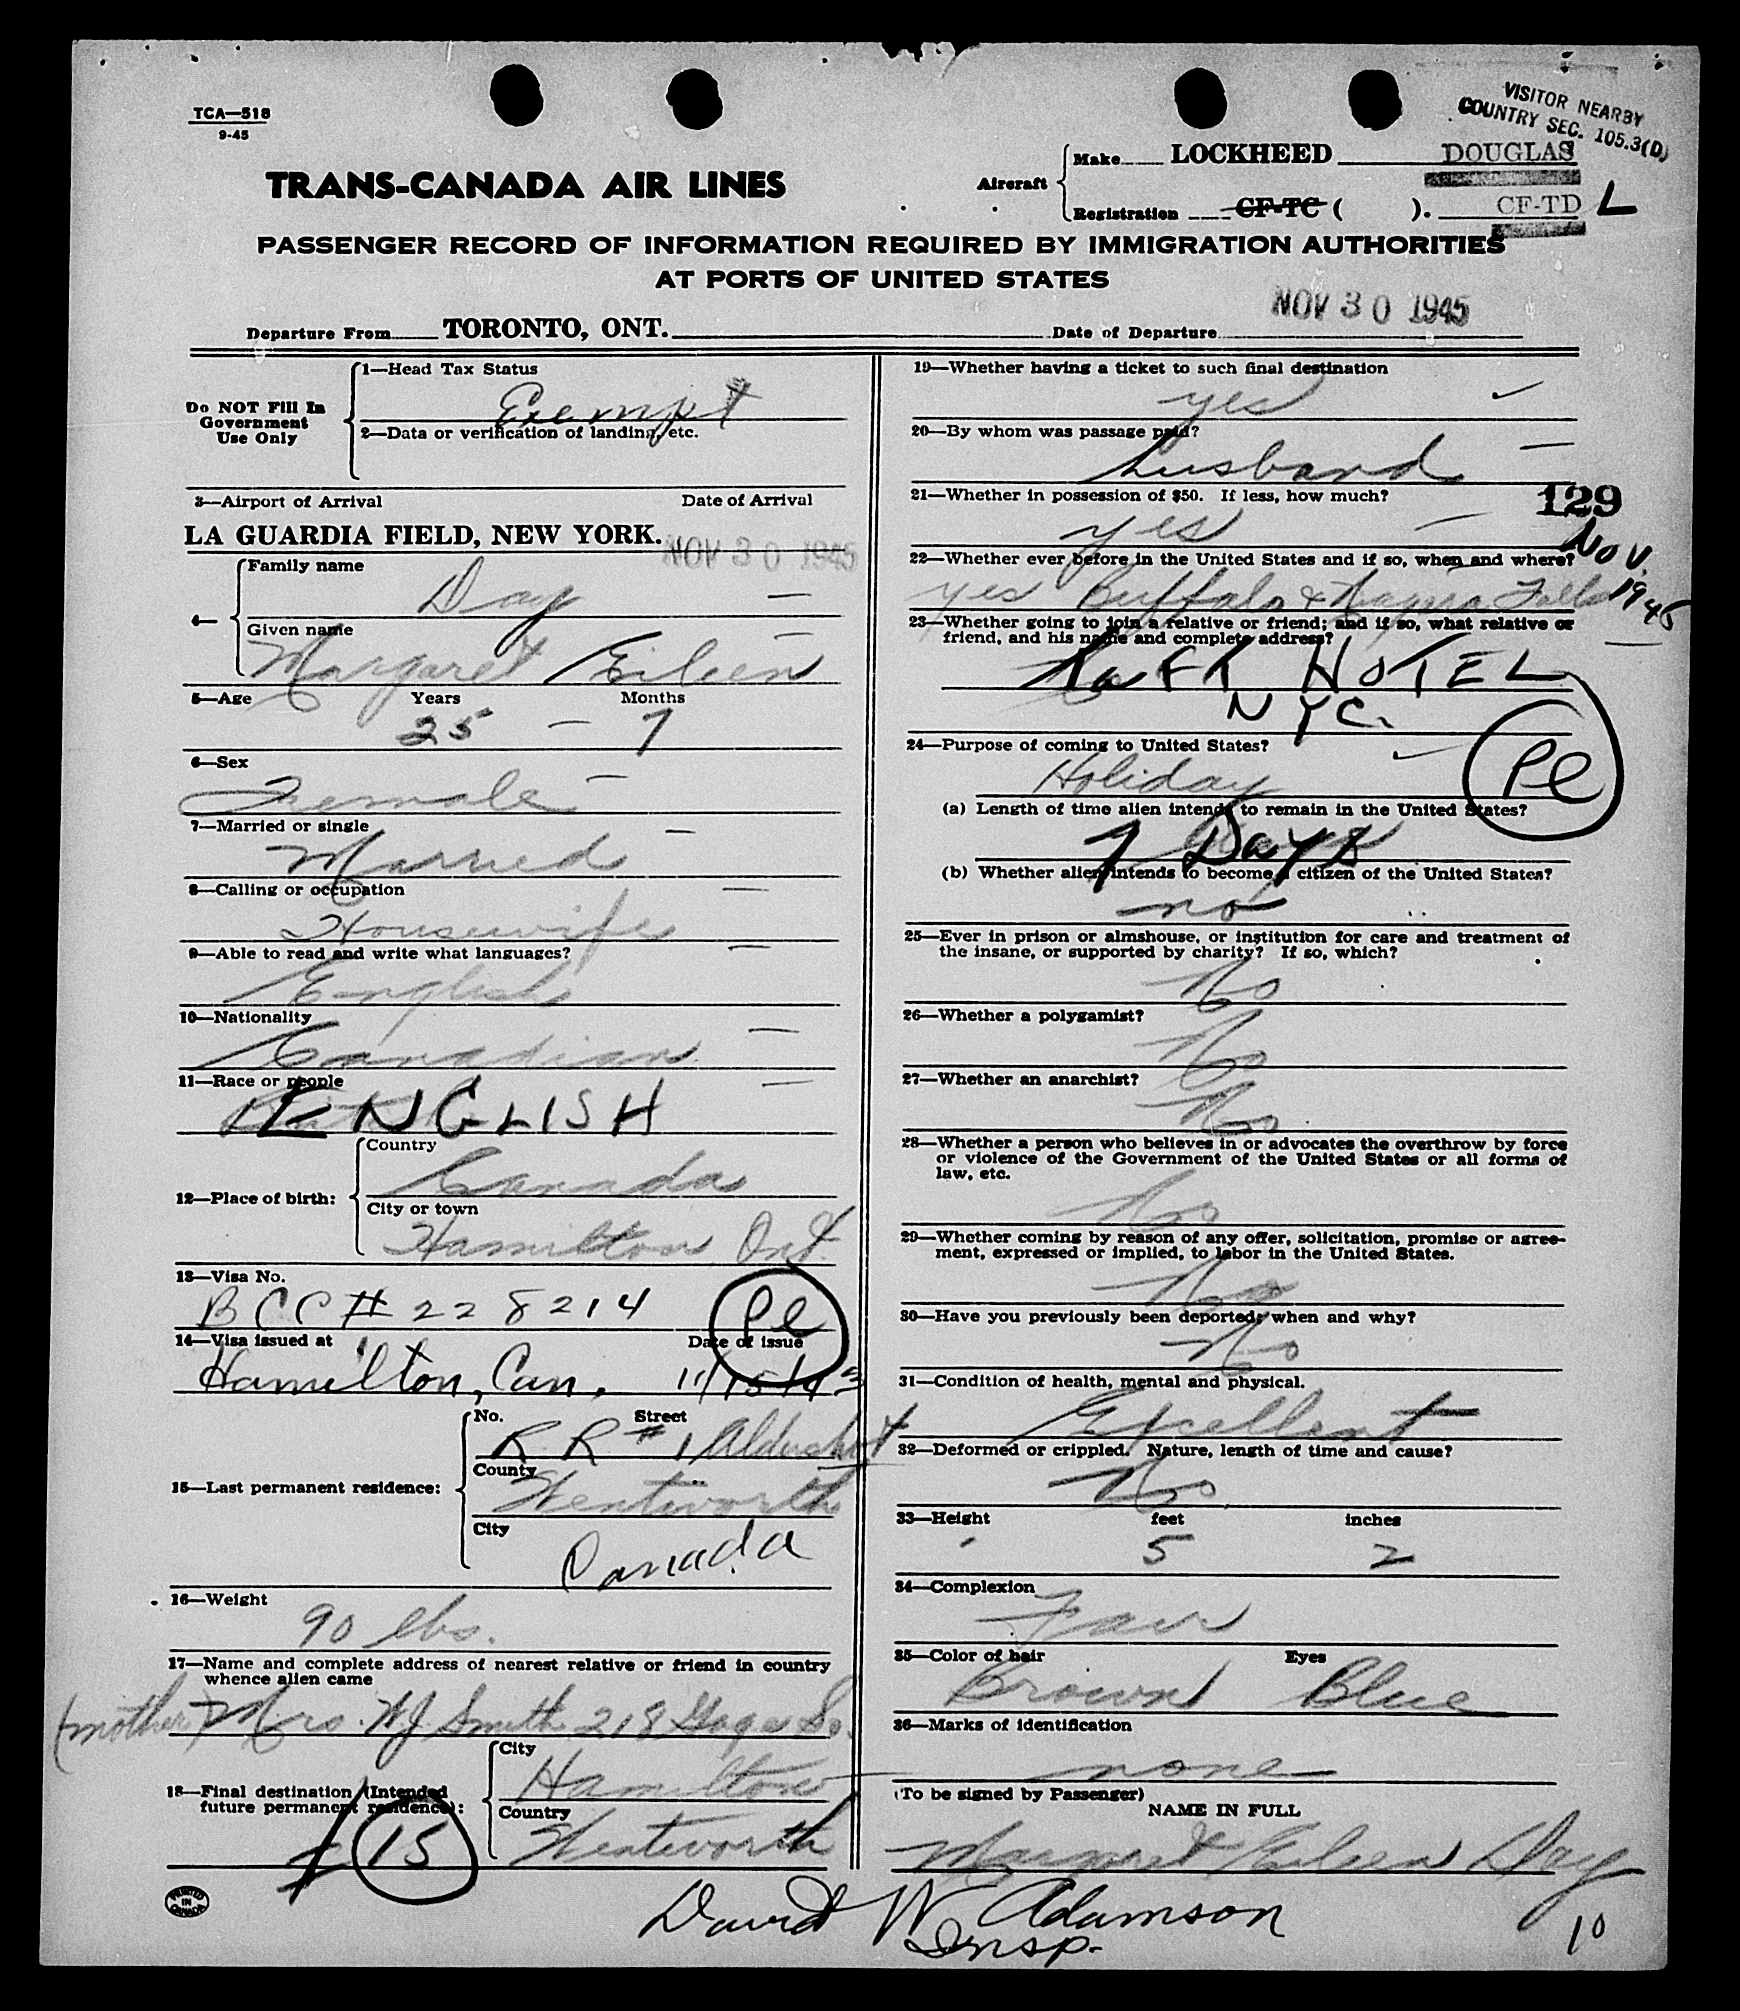 TCA—518
9-45
VISITOR NEARBY
COUNTRY SEC. 105.3(D)
TRANS-CANADA AIR LINES
Aircraft
Make LOCKHEED DOUGLAS
Registration CF-TC ( ). CF-TD L
PASSENGER RECORD OF INFORMATION REQUIRED BY IMMIGRATION AUTHORITIES
AT PORTS OF UNITED STATES
Departure From TORONTO, ONT. Date of Departure NOV 30 1945
Do NOT Fill In
Government
Use Only
1—Head Tax Status
Exempt
2—Data or verification of landing, etc.
3—Airport of Arrival Date of Arrival
LA GUARDIA FIELD, NEW YORK. NOV 30 1945
4—
Family name
Day —
Given name
Margaret Eileen —
5—Age Years Months
25 — 7
6—Sex
Female —
7—Married or single
Married —
8—Calling or occupation
Housewife —
9—Able to read and write what languages?
English —
10—Nationality
Canadian —
11—Race or people
ENGLISH —
12—Place of birth:
Country
Canada
City or town
Hamilton, Ont.
13—Visa No.
BCC # 228214
Pl
14—Visa issued at Date of issue
Hamilton, Can. 11/15/43
15—Last permanent residence:
No. Street
R R # 1 Aldershot
County
Wentworth
City
Canada
16—Weight
90 lbs.
17—Name and complete address of nearest relative or friend in country
whence alien came
(mother) Mrs. WJ Smith 218 Gage So.
18—Final destination (Intended
future permanent residence):
15
City
Hamilton
Country
Wentworth
PRINTED
IN
CANADA
19—Whether having a ticket to such final destination
yes
20—By whom was passage paid?
husband —
21—Whether in possession of $50. If less, how much?
yes —
129
22—Whether ever before in the United States and if so, when and where?
yes Buffalo & Niagra Falls Nov. 1945
23—Whether going to join a relative or friend; and if so, what relative or
friend, and his name and complete address?
TAFT HOTEL
NYC.
24—Purpose of coming to United States?
Holiday
Pl
(a) Length of time alien intends to remain in the United States?
7 Days
(b) Whether alien intends to become a citizen of the United States?
no
25—Ever in prison or almshouse, or institution for care and treatment of
the insane, or supported by charity? If so, which?
No
26—Whether a polygamist?
No
27—Whether an anarchist?
No
28—Whether a person who believes in or advocates the overthrow by force
or violence of the Government of the United States or all forms of
law, etc.
No
29—Whether coming by reason of any offer, solicitation, promise or agree-
ment, expressed or implied, to labor in the United States.
No
30—Have you previously been deported; when and why?
No
31—Condition of health, mental and physical.
Excellent
32—Deformed or crippled. Nature, length of time and cause?
No
33—Height feet inches
5 2
34—Complexion
Fair
35—Color of hair Eyes
Brown Blue
36—Marks of identification
none
(To be signed by Passenger)
NAME IN FULL
Margaret Eileen Day
David W. Adamson
Insp.
10